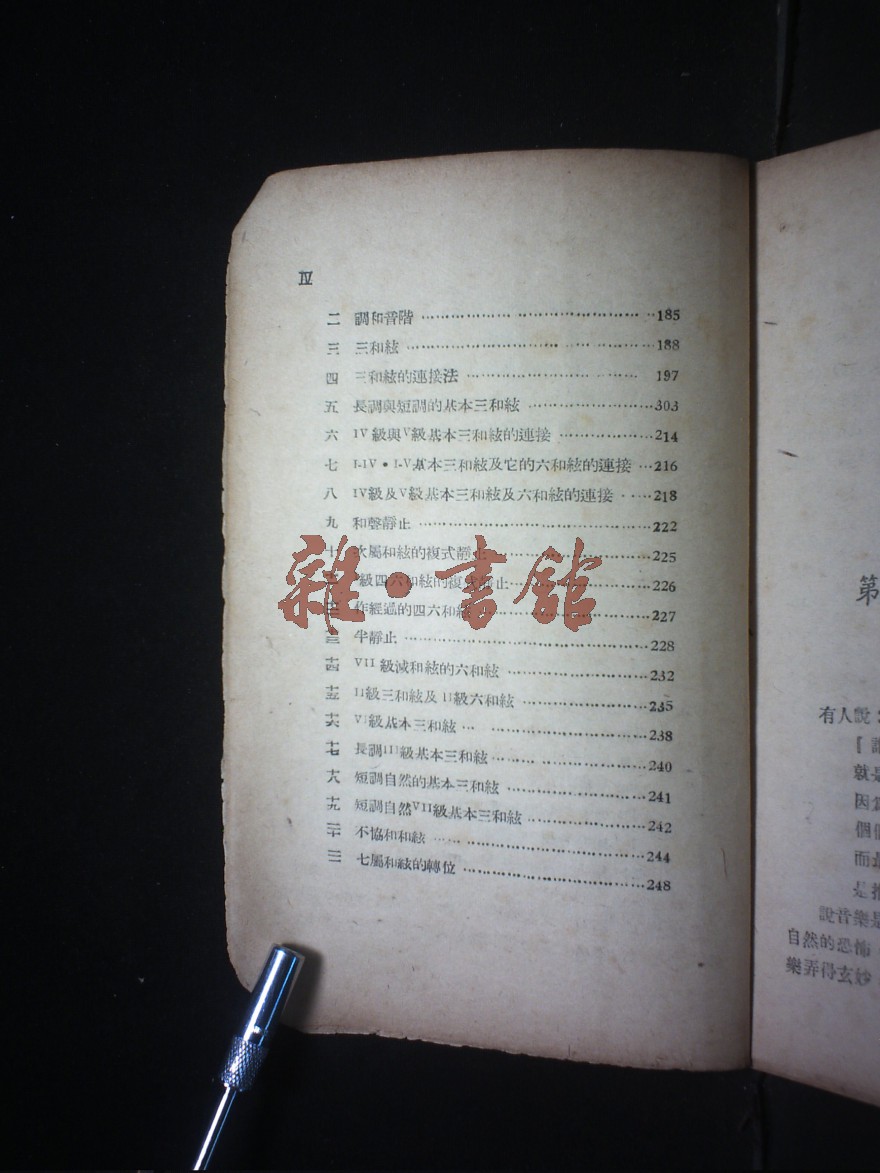 IV
二 調和音階 185
三 三和絃 188
四 三和絃的連接法 197
五 長調與短調的基本三和絃 303
六 IV級與V級基本三和絃的連接 214
七 I-IV•I-V基本三和絃及它的六和絃的連接 216
八 IV級及V級基本三和絃及六和絃的連接 218
九 和聲靜止 222
十 次屬和絃的複式靜止 225
級四六和絃的複式靜止 226
作經過的四六和絃 227
半靜止 228
十四 VII級減和絃的六和絃 232
十五 II級三和絃及II級六和絃 235
十六 VI級基本三和絃 238
十七 長調III級基本三和絃 240
十八 短調自然的基本三和絃 241
十九 短調自然VII級基本三和絃 242
二十 不協和和絃 244
七屬和絃的轉位 248
雜·書館
第
有人說：
就是
因為
個
而是
是
說音樂是
自然的恐怖
樂弄得玄妙